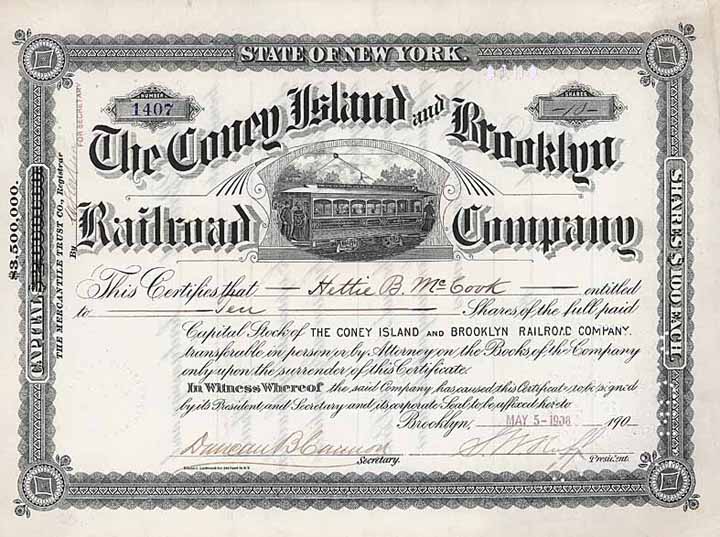 STATE OF NEW YORK.
NUMBER
1407
SHARES
-10-
The Coney Island and Brooklyn
Railroad Company
This Certifies that — Hettie B. McCook — entitled
to — Ten — Shares of the full paid
Capital Stock of THE CONEY ISLAND AND BROOKLYN RAILROAD COMPANY.
transferable in person or by Attorney on the Books of the Company
only upon the surrender of this Certificate.
In Witness Whereof the said Company has caused this Certificate to be signed
by its President and Secretary and its corporate Seal to be affixed hereto
Brooklyn, MAY 5-1908 190
Duncan B.
Secretary.
President.
CAPITAL
$3,500,000.
THE MERCANTILE TRUST CO., Registrar
By
FOR SECRETARY
SHARES $100 EACH.